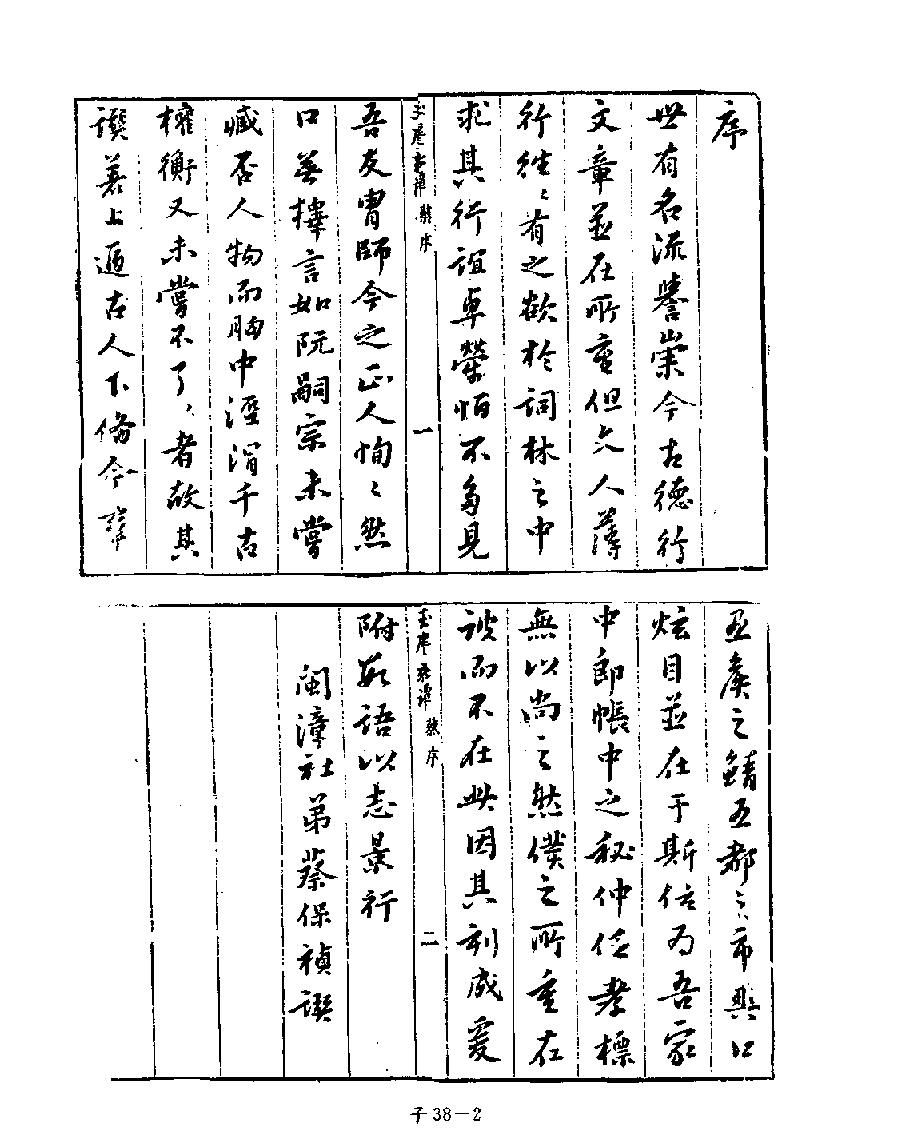 序
世有名流譽崇今古德行
文章並在所重但文人薄
行往〻有之欲於詞林之中
求其行誼卓犖怕不多見
玉屑 蔡序
一
吾友胄師今之正人恂〻然
口無擇言如阮嗣宗未嘗
臧否人物而胸中涇渭千古
權衡又未嘗不了〻者故其
譔著上遡古人下脩今
五侯之鯖五都之市興口
炫目並在于斯信為吾家
中郎帳中之秘仲任孝標
無以尚之然僕之所重在
彼而不在此因其刻成爰
玉屑 蔡序
二
附數語以志景行
閩漳社弟蔡保禎譔
子38－2